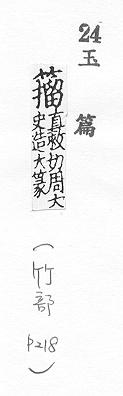 24
玉篇
籀直救切周大
史造大篆
(竹部
p218)